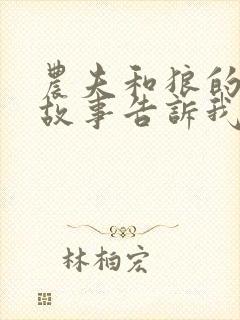 農夫和狼的
故事告訴我
林柏宏